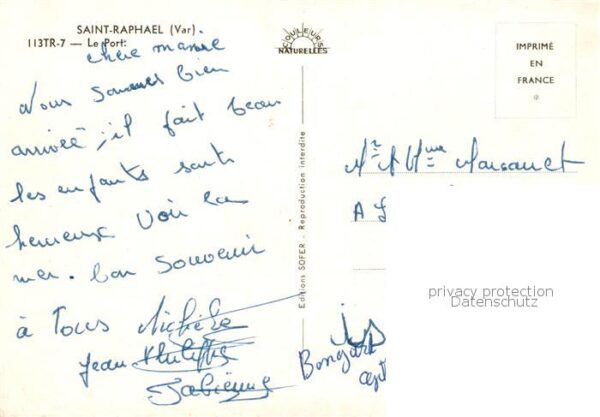 SAINT-RAPHAEL (Var).
113TR-7 — Le Port:
COULEURS
NATURELLES
IMPRIMÉ
EN
FRANCE
chère mamie
Nous sommes bien
arrivée, il fait beau
les enfants sont
heureux voir la
mer. bon souvenir
à Tous Michèle
Jean Philippe
Fabienne
Editions SOFER - Reproduction interdite
Mr et Mme
A
privacy protection
Datenschutz